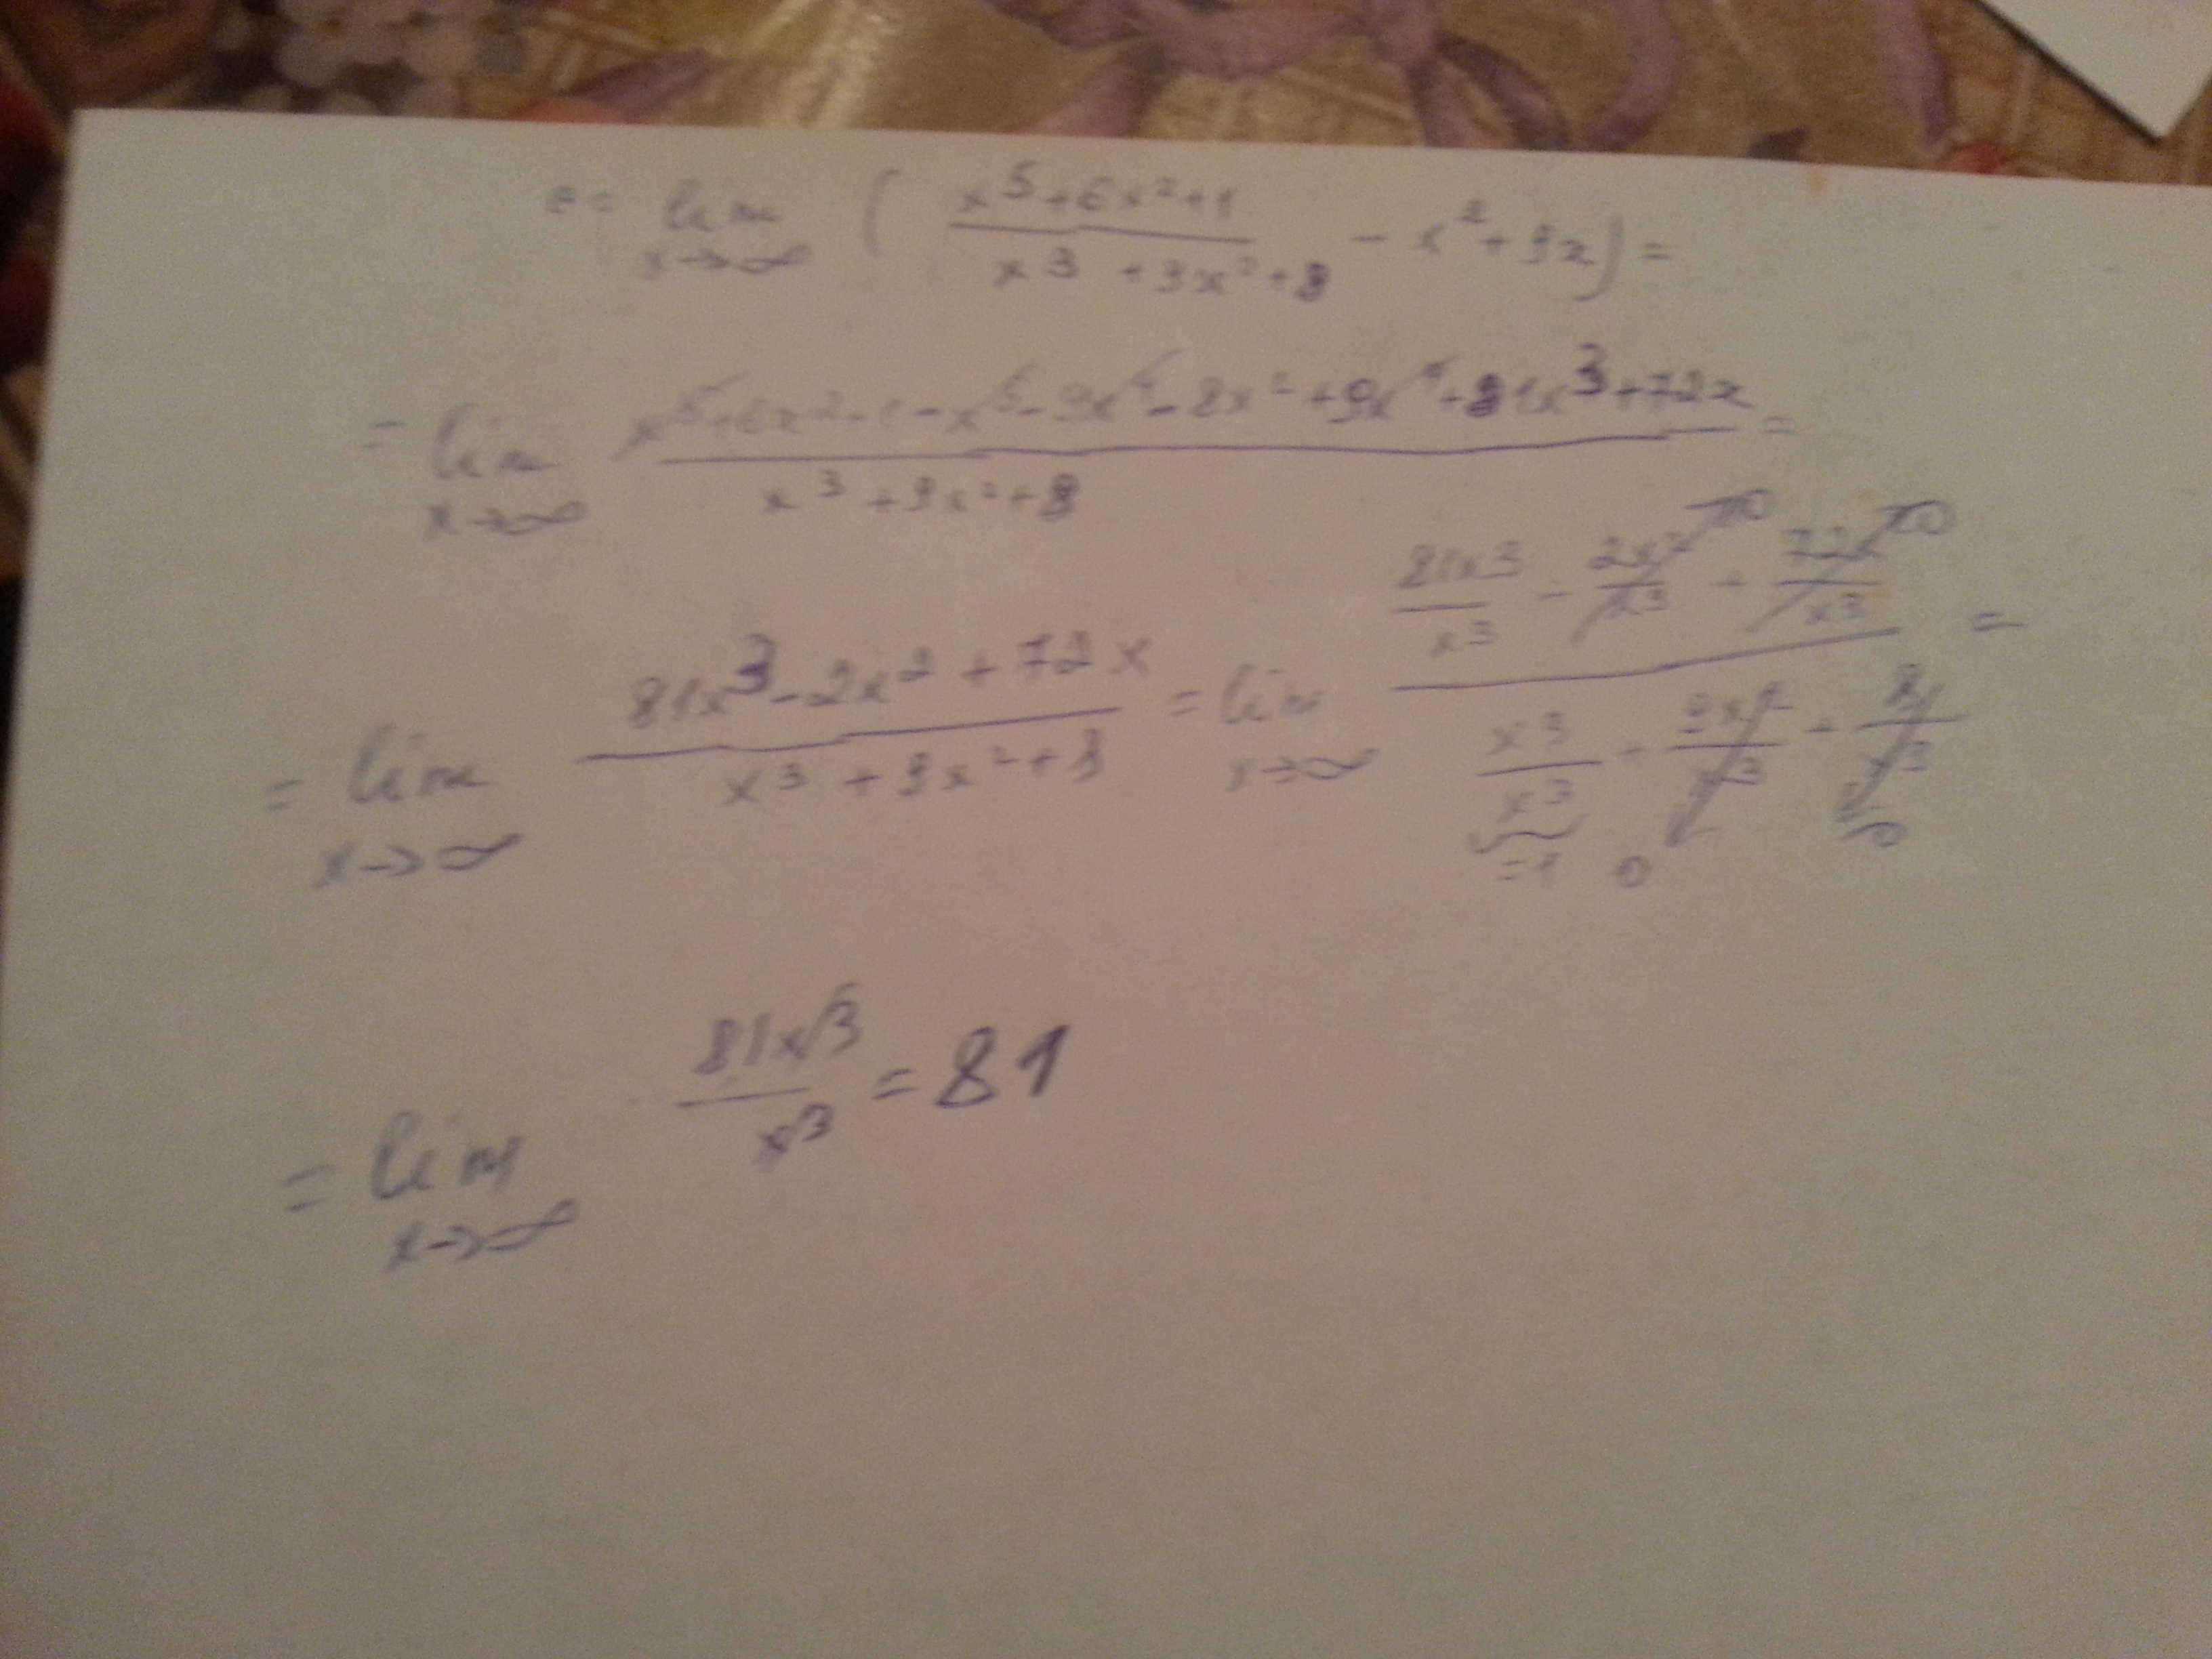 b = lim x→∞ ( (x⁵+6x²+1)/(x³+9x²+8) − x²+9x) =
= lim x→∞ (x⁵+6x²+1−x⁵−9x⁴−8x²+9x⁴+81x³+72x)/(x³+9x²+8) =
= lim x→∞ (81x³−2x²+72x)/(x³+9x²+8) = lim x→∞ (81x³/x³ − 2x²/x³ →0 + 72x/x³ →0)/(x³/x³ =1 + 9x²/x³ →0 + 8/x³ →0) =
= lim x→∞ 81x³/x³ = 81